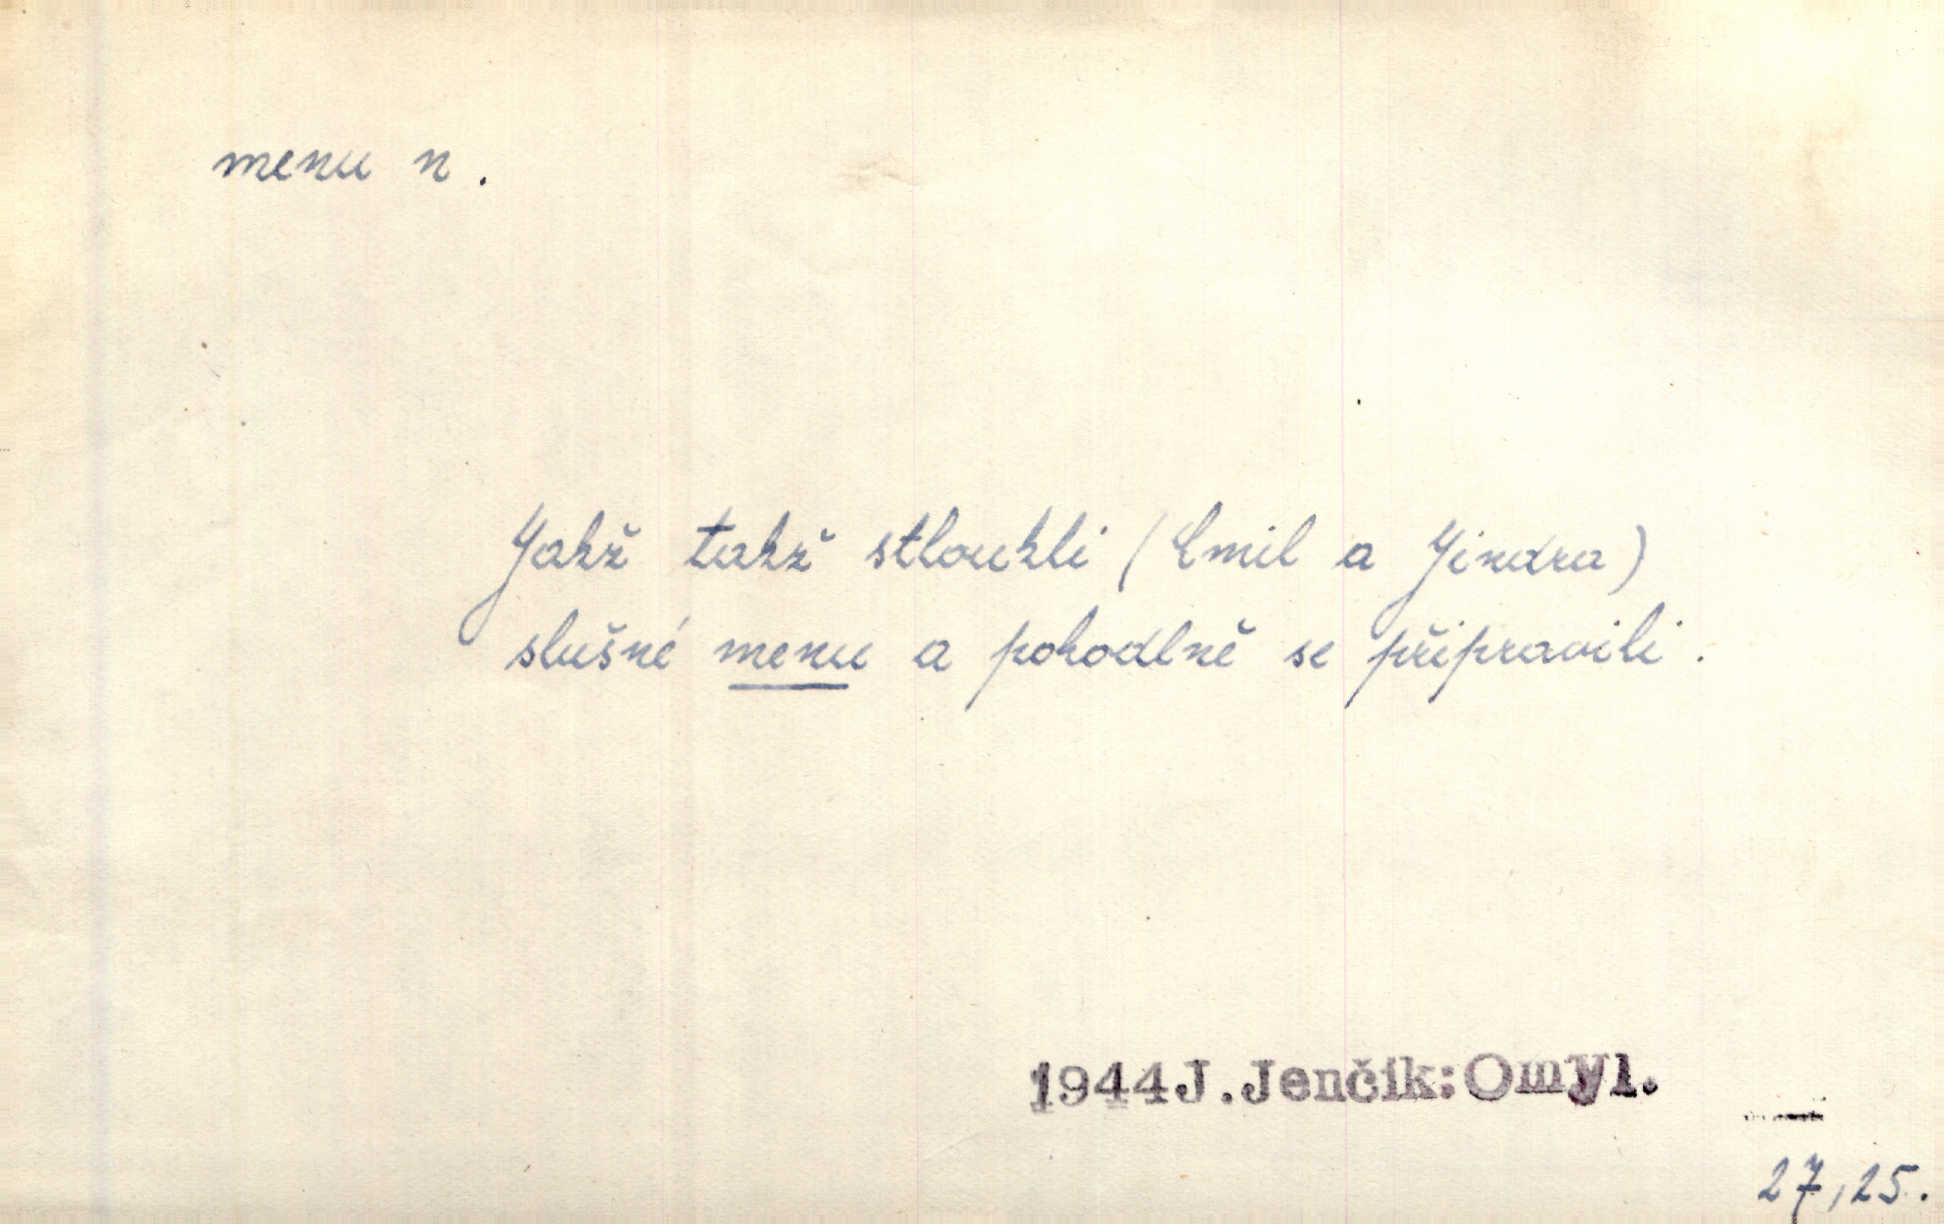 menu n.
Jakž takž stloukli (Emil a Jindra)
slušné menu a pohodlně se připravili.
1944 J. Jenčík: Omyl.
27,25.